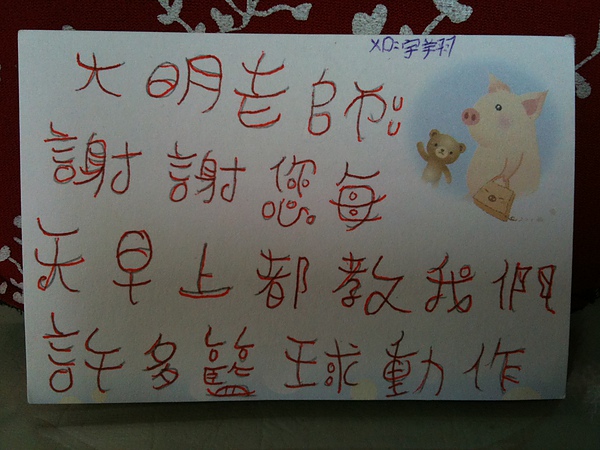 宇翔
大明老師:
謝謝您。每
天早上都教我們
許多籃球動作